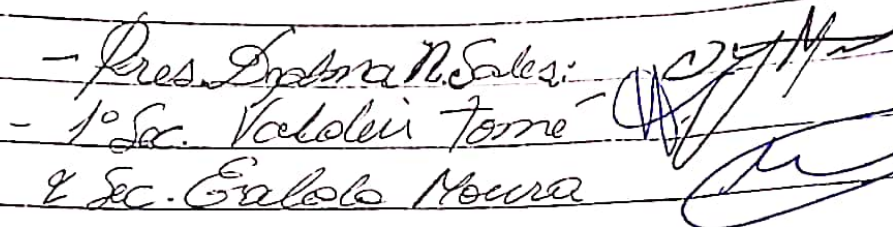 - Pres. Djalma N. Sales:
- 1º Sec. Valdeir Tomé
2 Sec. Eraldo Moura